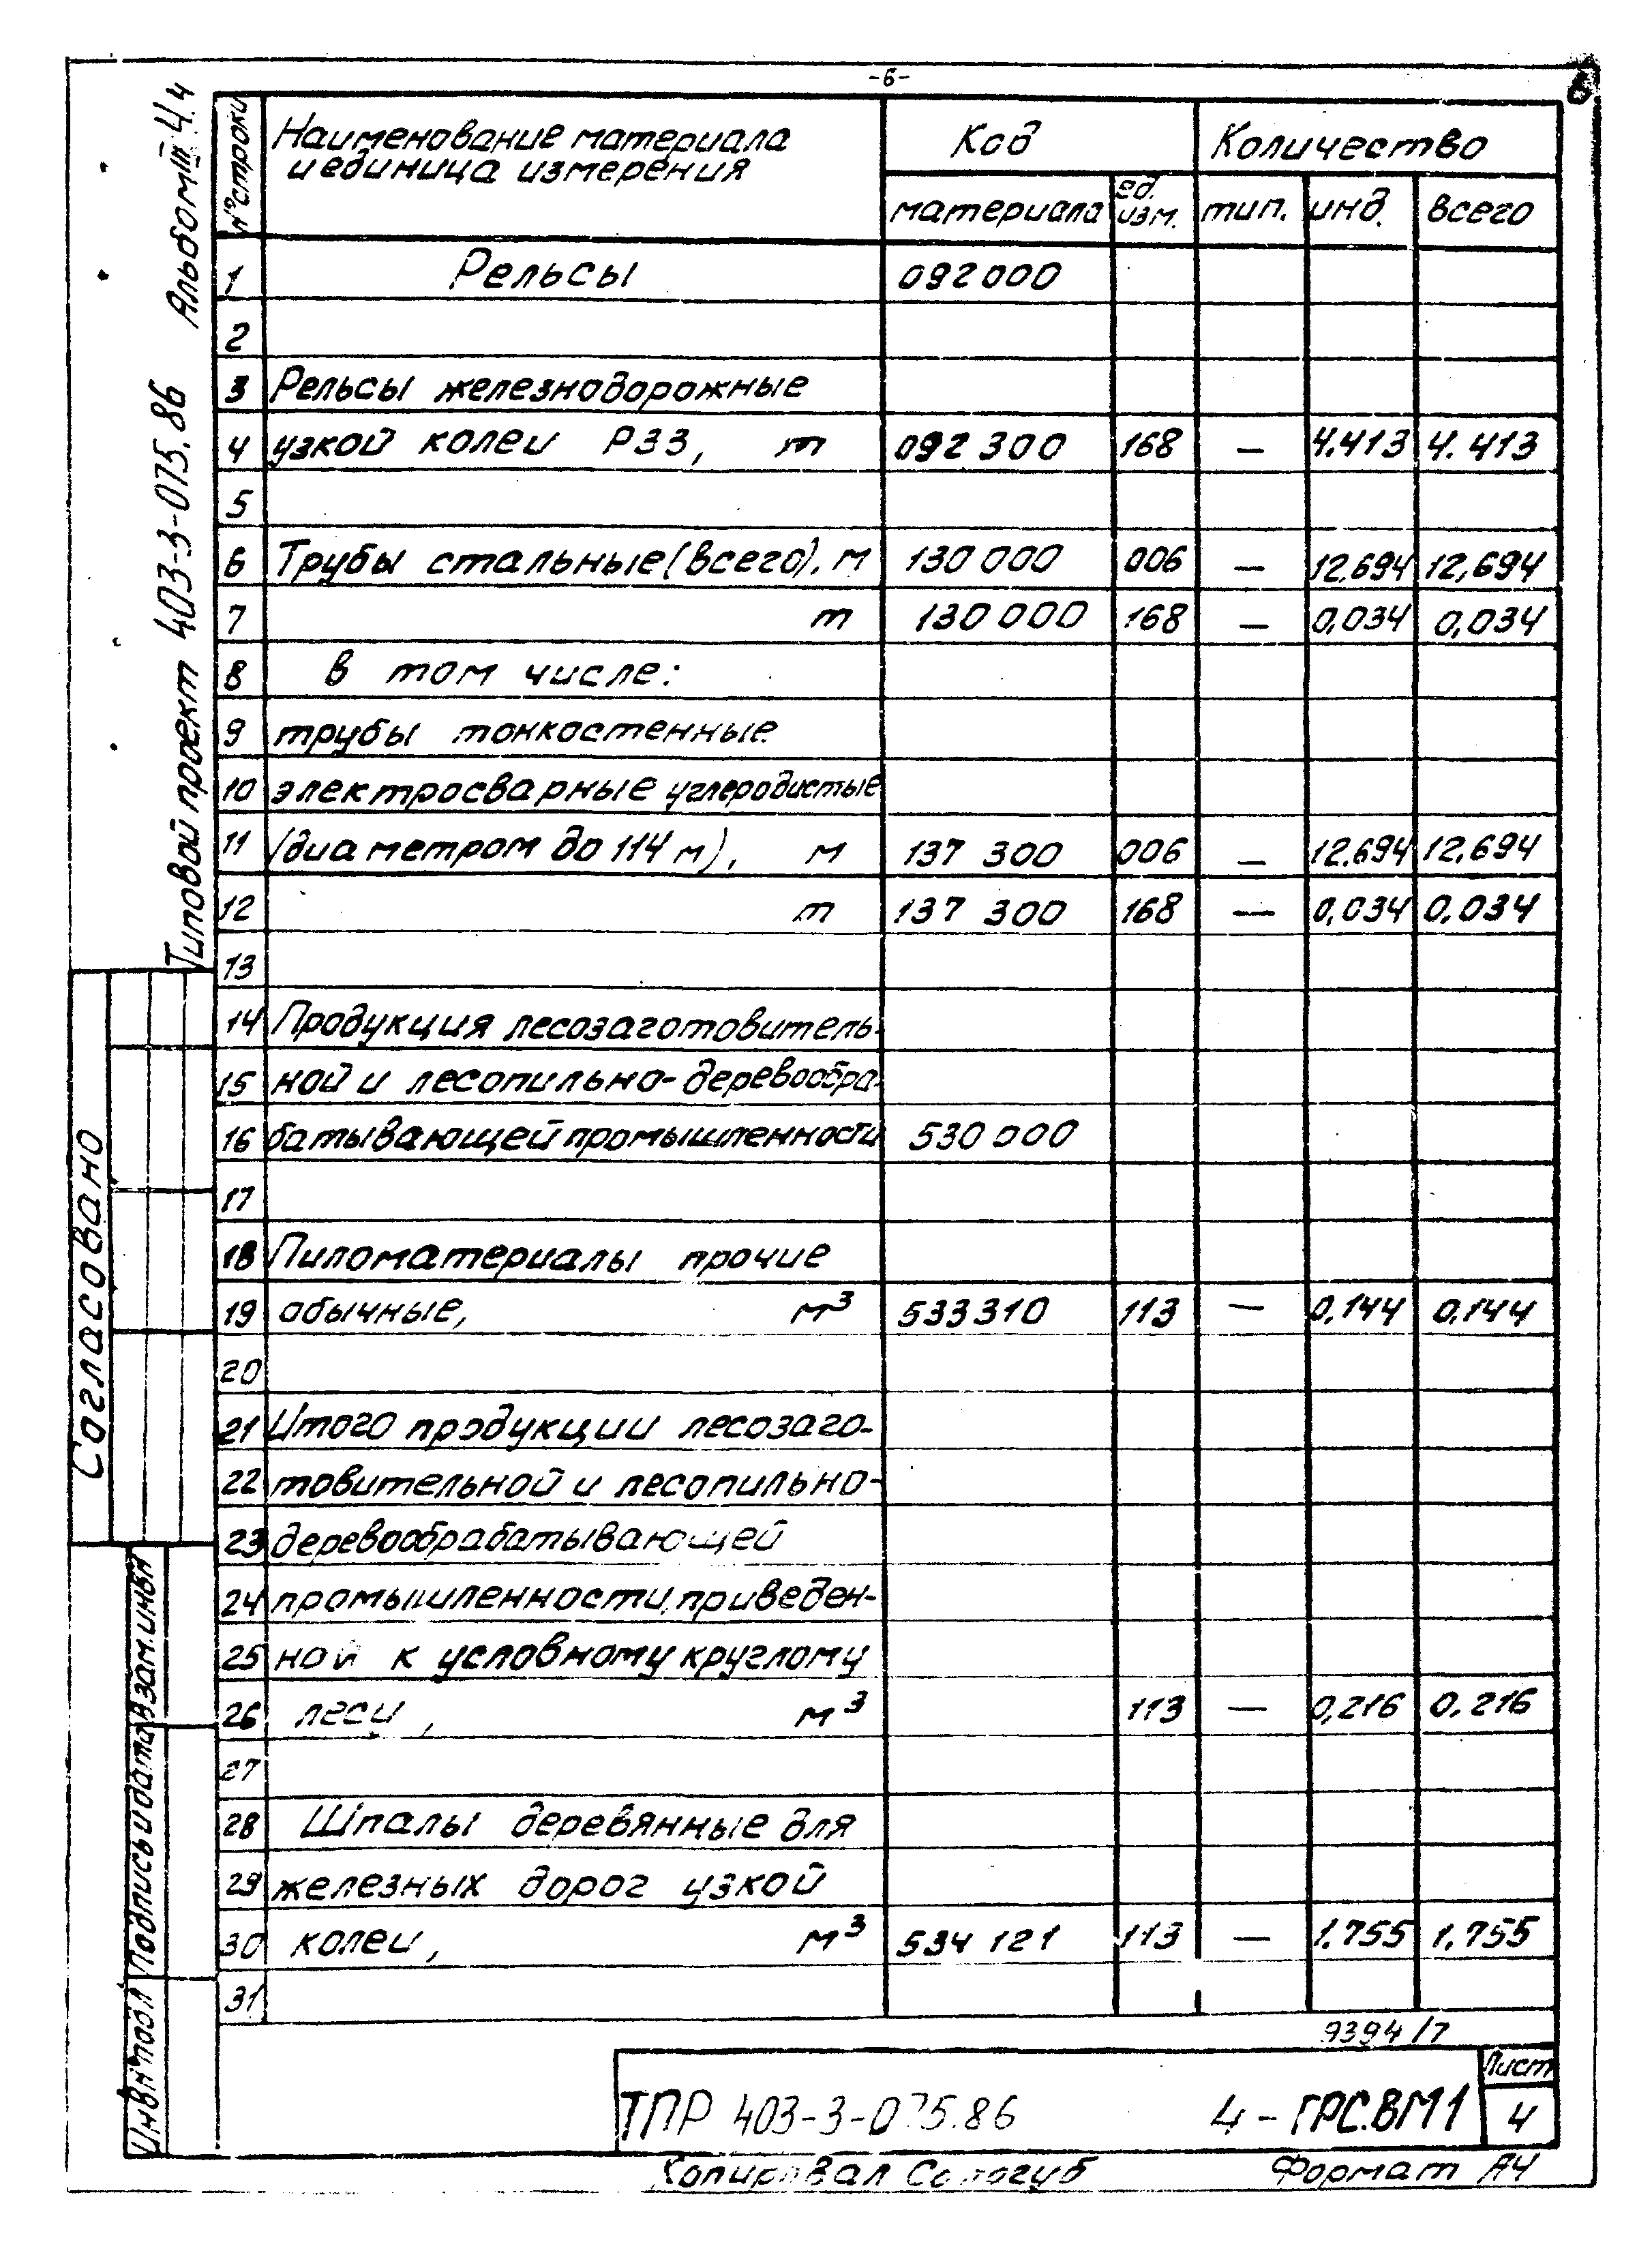 -6-
6
Альбом III ч.4
Типовой проект 403-3-075.86
Согласовано
Взам.инв.N
Подпись и дата
Инв.N°подл
N°строки Наименование материала и единица измерения Код Количество
материала ед. изм. тип. инд. всего
1 Рельсы 092000
2
3 Рельсы железнодорожные
4 узкой колеи Р33, т 092 300 168 — 4.413 4.413
5
6 Трубы стальные (всего), м 130 000 006 — 12.694 12,694
7 т 130 000 168 — 0,034 0,034
8 в том числе:
9 трубы тонкостенные
10 электросварные углеродистые
11 (диаметром до 114 м), м 137 300 006 — 12.694 12,694
12 т 137 300 168 — 0,034 0,034
13
14 Продукция лесозаготовитель-
15 ной и лесопильно-деревообра-
16 батывающей промышленности 530 000
17
18 Пиломатериалы прочие
19 обычные, м³ 533310 113 — 0,144 0,144
20
21 Итого продукции лесозаго-
22 товительной и лесопильно-
23 деревообрабатывающей
24 промышленности, приведен-
25 ной к условному круглому
26 лесу, м³ 113 — 0,216 0,216
27
28 Шпалы деревянные для
29 железных дорог узкой
30 колеи, м³ 534 121 113 — 1.755 1,755
31
9394/7
ТПР 403-3-075.86 4-ГРС.ВМ1 Лист 4
Копировал Сологуб Формат А4